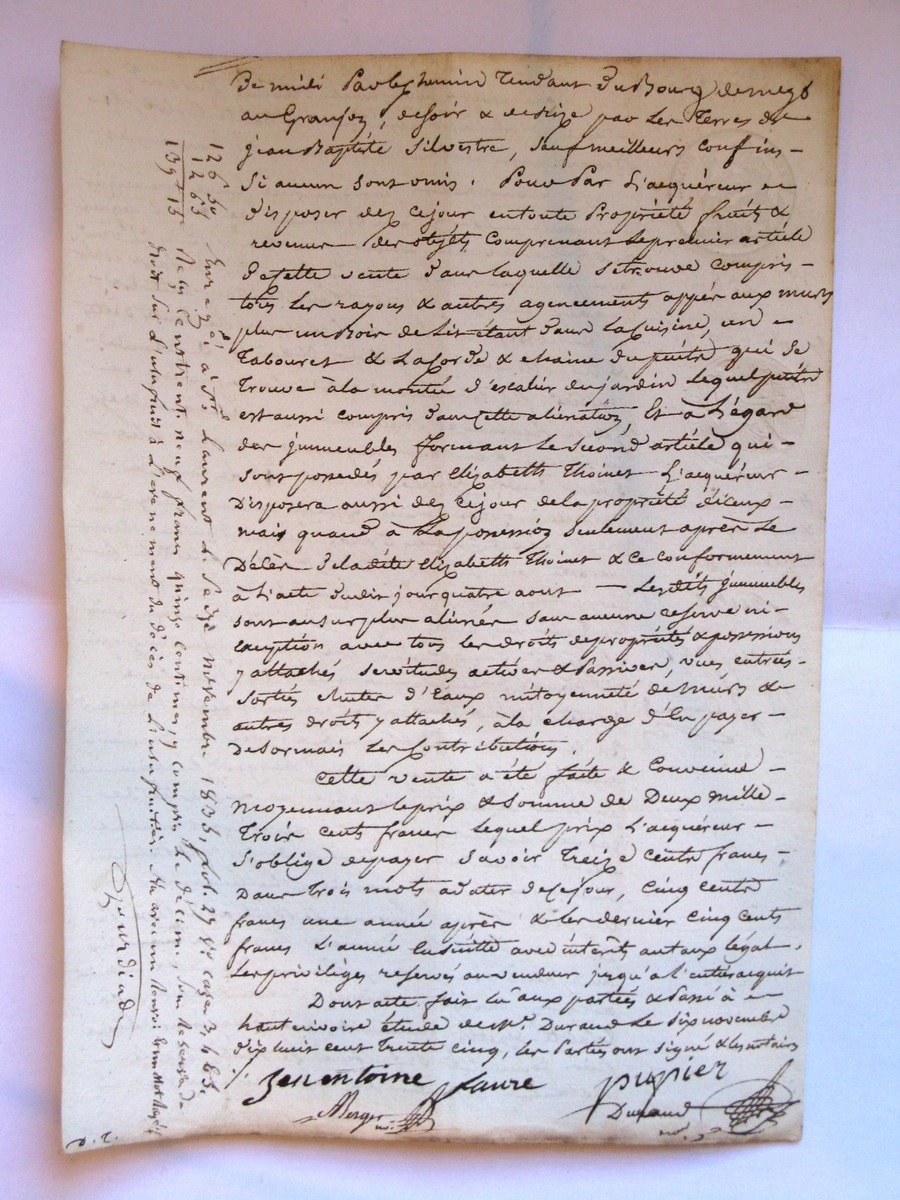 De midi Par le chemin Tendant du Bourg de
au Granjoz, de soir & de bize par les Terres de
jean Baptiste Silvestre, sauf meilleurs confins
si aucun sont omis. Pour Par L'acquéreur
disposer dez ce jour en toute Propriété fruits &
revenus des objéts comprenant le premier article
de cette vente dans laquelle se trouve compris
tous les rayons & autres agencements appés aux murs
plus un Bois de Lit étant dans la Cuisine, un
Tabouret & La Corde & chaine du puits qui se
Trouve à la montée d'escalier du jardin Lequel puits
est aussi compris dans cette aliénation, Et à L'égard
des jmmeubles formant Le second article qui
sont possedés par elizabeth Thoinet L'acquéreur
Disposera aussi dez ce jour de la propriété d'iceux
mais quand à La possession seulement après Le
Décès de ladite Elizabeth Thoinet & ce conformement
à L'acte dudit jour quatre aout — Lesdits jmmeubles
sont au surplus aliénés sans aucune reserve ni
exception avec tous les droits de propriétés & possessions
y attachés servitudes actives & Passives, vues entrées
sorties chutes d'Eaux mitoyenneté de murs &
autres droits y attachés, à la charge d'En payer
Desormais Les Contributions.
Cette vente a été faite & Convenue
moyennant le prix & Somme de Deux mille
Trois cents francs Lequel prix L'acquéreur
s'oblige de payer savoir Treize cents francs
Dans Trois mois a dater de ce jour, Cinq cents
francs une année après & les dernier cinq cents
francs L'année Ensuitte avec intérêts au taux légal.
Les priviléges reservés au vendeur jusqu'a l'entier acquit
Dont acte fait lû aux parties & Passé à
haut rivoire étude de Mᵉ. Durand Le Dix novembre
dix huit cent Trente cinq, les Parties ont signé & les notaires
jean entoine faure pupier
Merger noᵉ. Durand
noᵉ.
126 50
12 65
139 15
Enregé à St Laurent le seize novembre 1835, fol. 27 Vº cases 3, 4 & 5.
Reçu cent trente neuf francs quinze centimes, y compris le décime,
droit sur l'usufruit à L'evenement du décès de L'usufruitière.
D. 2.